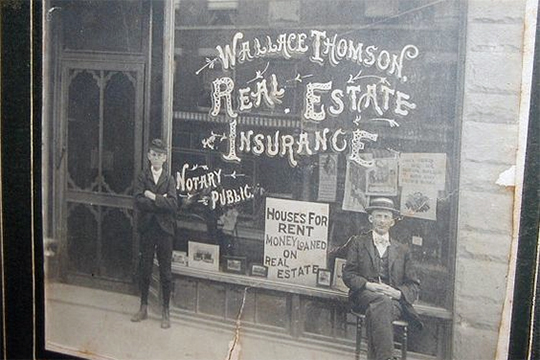 WALLACE THOMSON.
REAL ESTATE
INSURANCE
NOTARY
PUBLIC.
HOUSES FOR
RENT
MONEY LOANED
ON
REAL
ESTATE